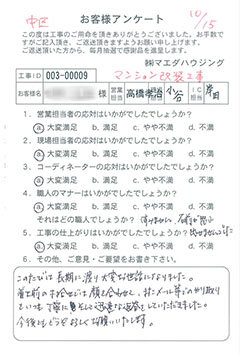 中区
お客様アンケート
10/15
この度は工事のご用命を頂きありがとうございました。お手数で
すがご記入頂き、ご返送頂きますようお願い申し上げます。
ご返送頂いた方から、毎月抽選で感謝品を進呈します。
㈱マエダハウジング
工事ID 003-00009 マンション改装工事
お客様名 様 営業担当 高橋 小谷 工事担当
1．営業担当者の応対はいかがでしたでしょうか？
ⓐ大変満足 b. 満足 c. やや不満 d. 不満
2．現場担当者の応対はいかがでしたでしょうか？
ⓐ大変満足 b. 満足 c. やや不満 d. 不満
3．コーディネーターの応対はいかがでしたでしょうか？
ⓐ大変満足 b. 満足 c. やや不満 d. 不満
4．職人のマナーはいかがでしたでしょうか？
ⓐ大変満足 b. 満足 c. やや不満 d. 不満
それはどの職人でしょうか？
5．工事の仕上がりはいかがでしたでしょうか？
ⓐ大変満足 b. 満足 c. やや不満 d. 不満
6．その他、ご意見・ご要望をお書き下さい。
このたびでは長期に渡り大変お世話になりました。
着工前の打合せでは顔を合わせて、またメール等でのやり取り
もいつも丁寧に、そして迅速な返答をしていただきました。
今後ともどうぞよろしくお願いいたします。